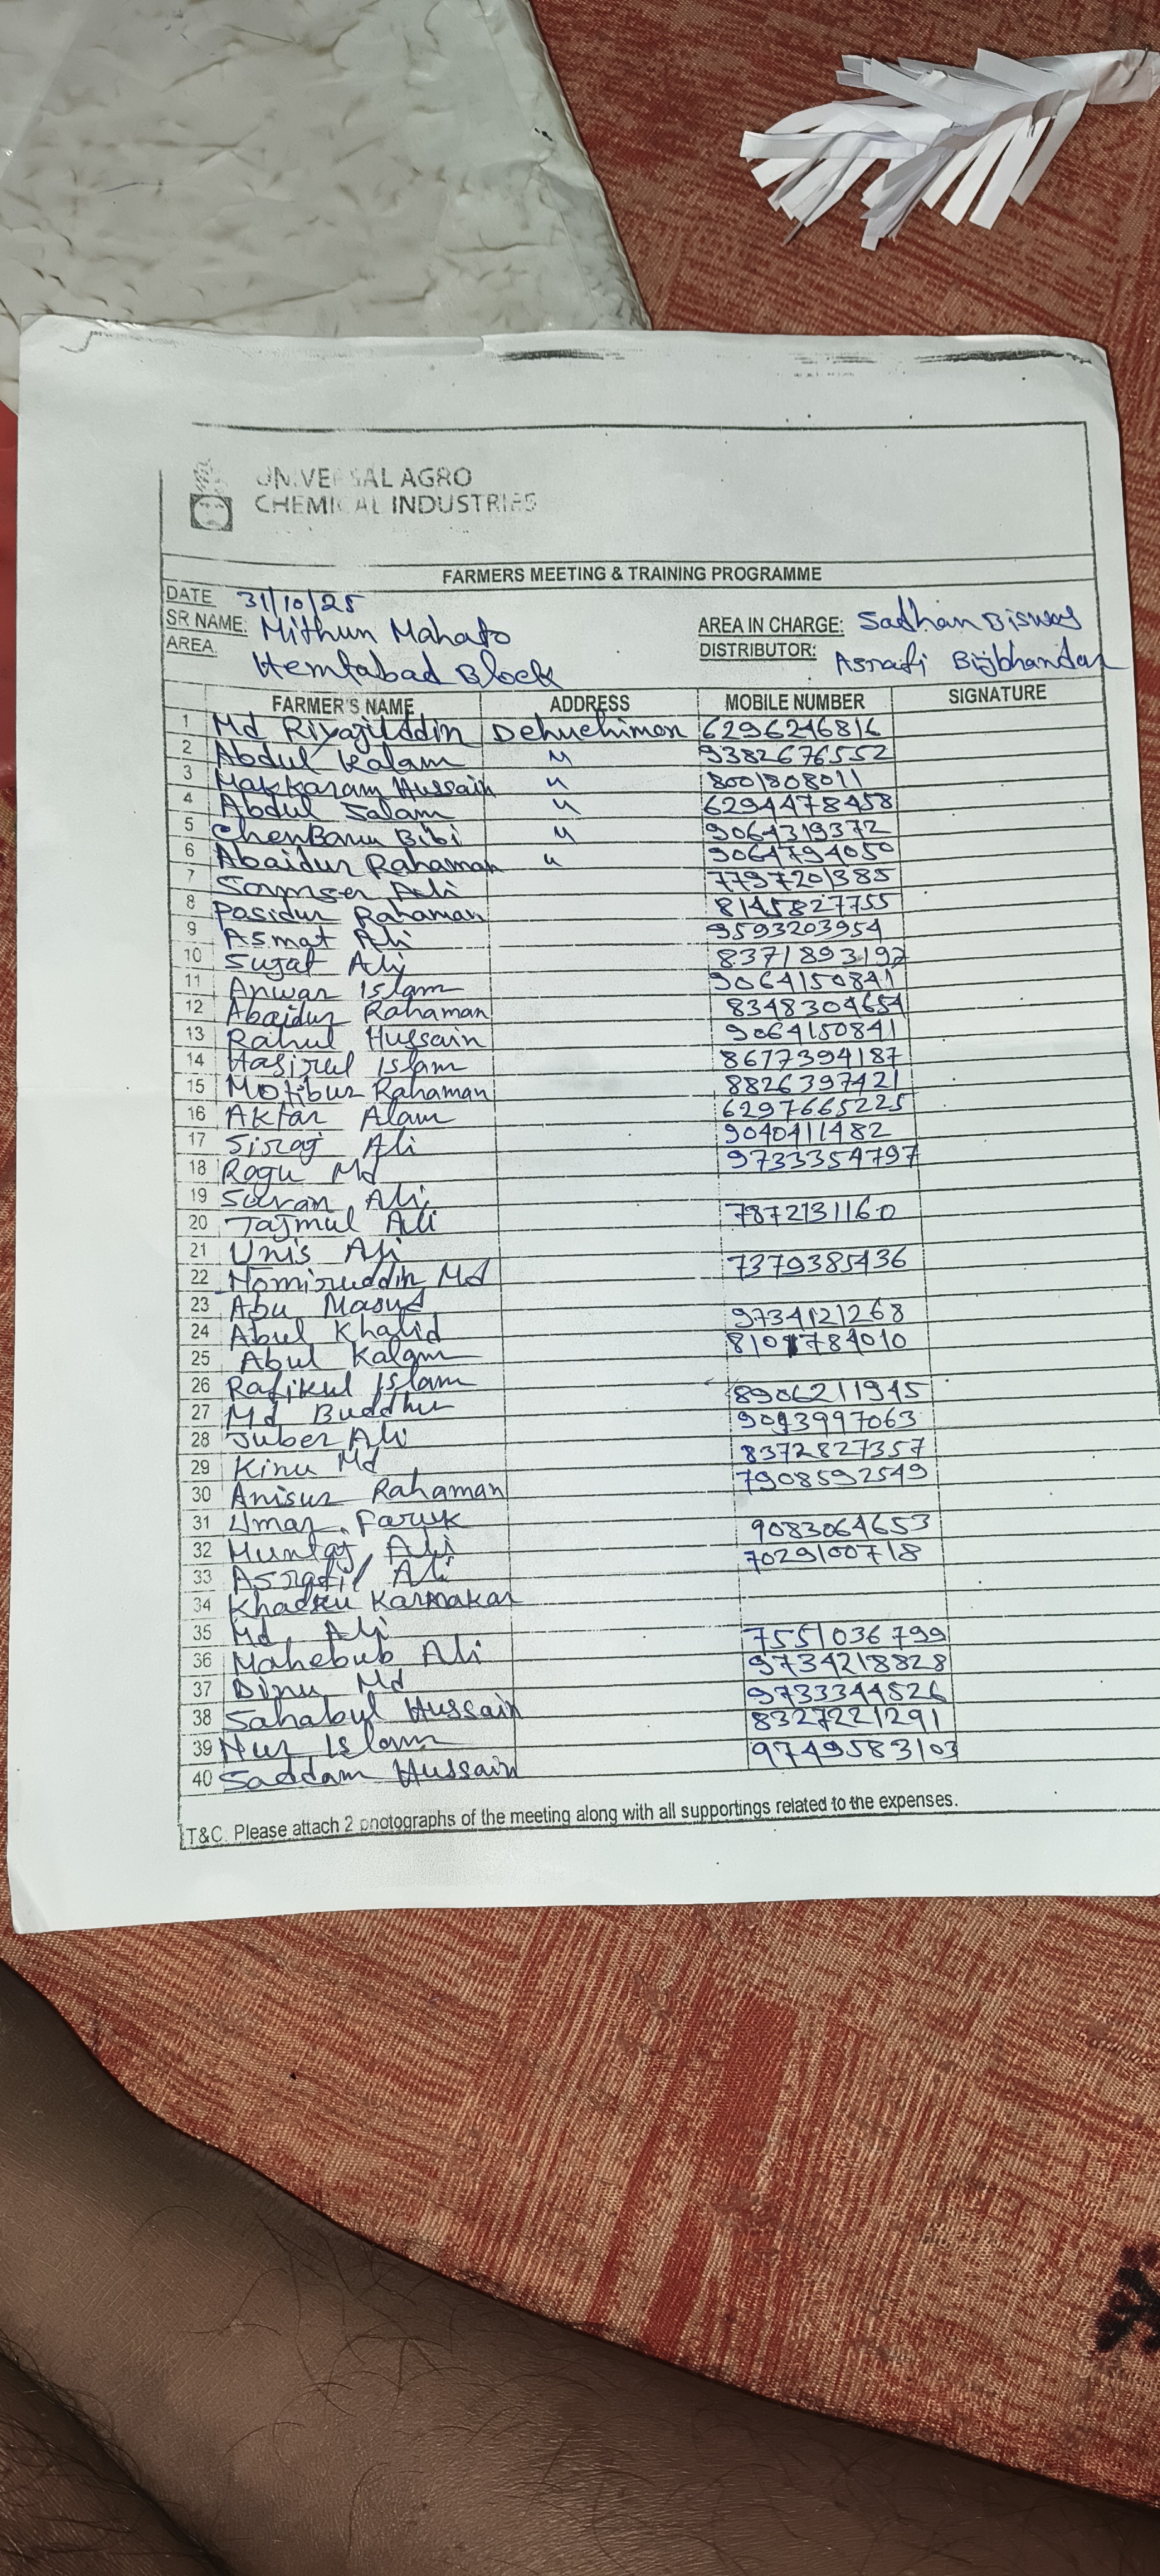 UNIVERSAL AGRO
CHEMICAL INDUSTRIES
FARMERS MEETING & TRAINING PROGRAMME
DATE 31/10/25
SR NAME: Mithun Mahato AREA IN CHARGE: Sadhan Biswas
AREA Hemtabad Block DISTRIBUTOR: Asrafi Bijbhandar
FARMER'S NAME ADDRESS MOBILE NUMBER SIGNATURE
1 Md Riyajuddin Dehuchimon 6296246816
2 Abdul Kalam 〃 9382676552
3 Makkaram Hussain 〃 8001808011
4 Abdul Salam 〃 6294478458
5 ChenBanu Bibi 〃 9064319372
6 Abaidur Rahaman 〃 9064794050
7 Samser Ali 7797201385
8 Posidur Rahaman 8145827755
9 Asmat Ali 9593203954
10 Sujat Ali 8371893197
11 Anwar Islam 9064150841
12 Abaidur Rahaman 8348304654
13 Rahul Hussain 9064150841
14 Hasirul Islam 8617394187
15 Motibur Rahaman 8826397421
16 Aktar Alam 6297665225
17 Siraj Ali 9040411482
18 Rogu Md 9733354797
19 Savan Ali
20 Tajmul Ali 7872131160
21 Unis Ali
22 Homiruddin Md 7379385436
23 Abu Masud
24 Abul Khalid 9734121268
25 Abul Kalam 8101784010
26 Rafikul Islam
27 Md Buddhu 8906211945
28 Juber Ali 9093997063
29 Kinu Md 8372827357
30 Anisur Rahaman 7908592549
31 Umar Faruk
32 Muntaj Ali 9083064653
33 Asrafil Ali 7029100718
34 Karmakar
35 Md Ali
36 Mahebub Ali 7551036799
37 Dinu Md 9734218828
38 Sahabul Hussain 9733344526
39 Nur Islam 8327221291
40 Saddam Hussain 9749583103
T&C. Please attach 2 photographs of the meeting along with all supportings related to the expenses.